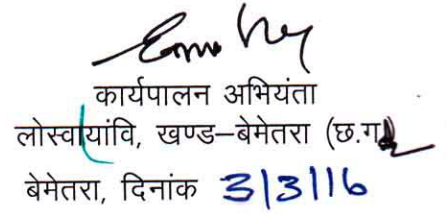 कार्यपालन अभियंता
लोस्वायांवि, खण्ड–बेमेतरा (छ.ग.
बेमेतरा, दिनांक 3/3/16